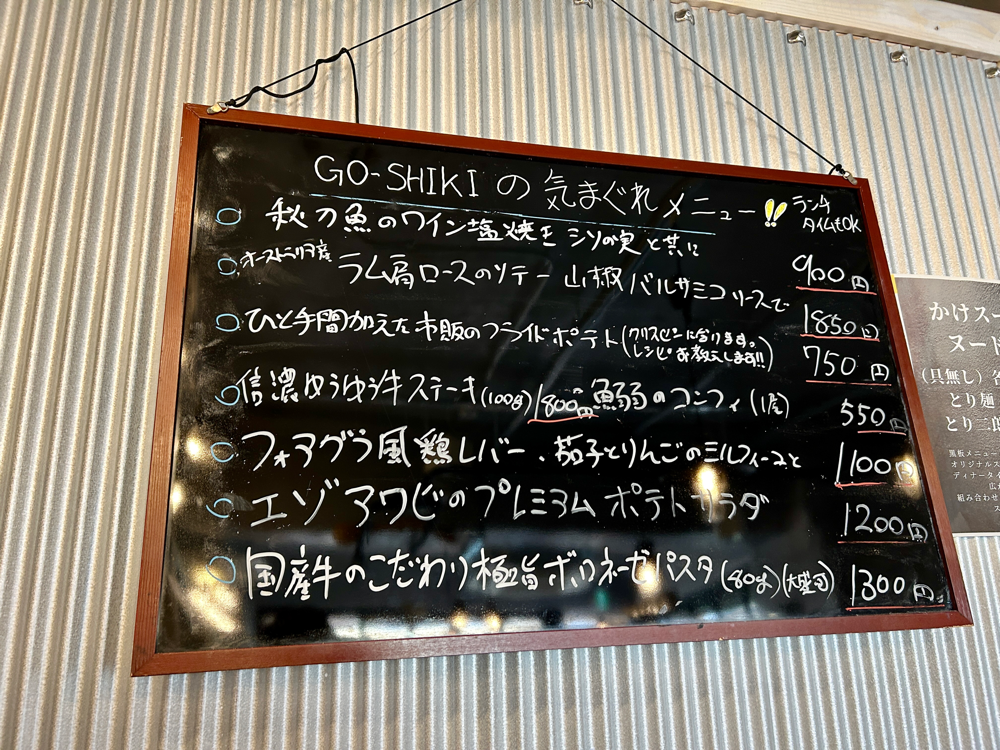 GO-SHIKIの気まぐれメニュー!! ランチタイムもOK
秋刀魚のワイン塩焼き シソの実と共に 900円
オーストラリア産 ラム肩ロースのソテー 山椒バルサミコソースで 1850円
ひと手間加えた市販のフライドポテト(クリスピーになります。レシピお教えします!!) 750円
信濃ゆうゆう牛ステーキ(100g) 1800円 鰯のコンフィ(1尾) 550円
フォアグラ風鶏レバー、茄子とりんごのミルフィーユと 1100円
エゾアワビのプレミアムポテトサラダ 1200円
国産牛のこだわり極旨ボロネーゼパスタ(80g)(大盛可) 1300円
かけスー
ヌード
(具無し)各
とり麺
とり三郎
黒板メニュー
オリジナルス
ディナータイ
組み合わせ